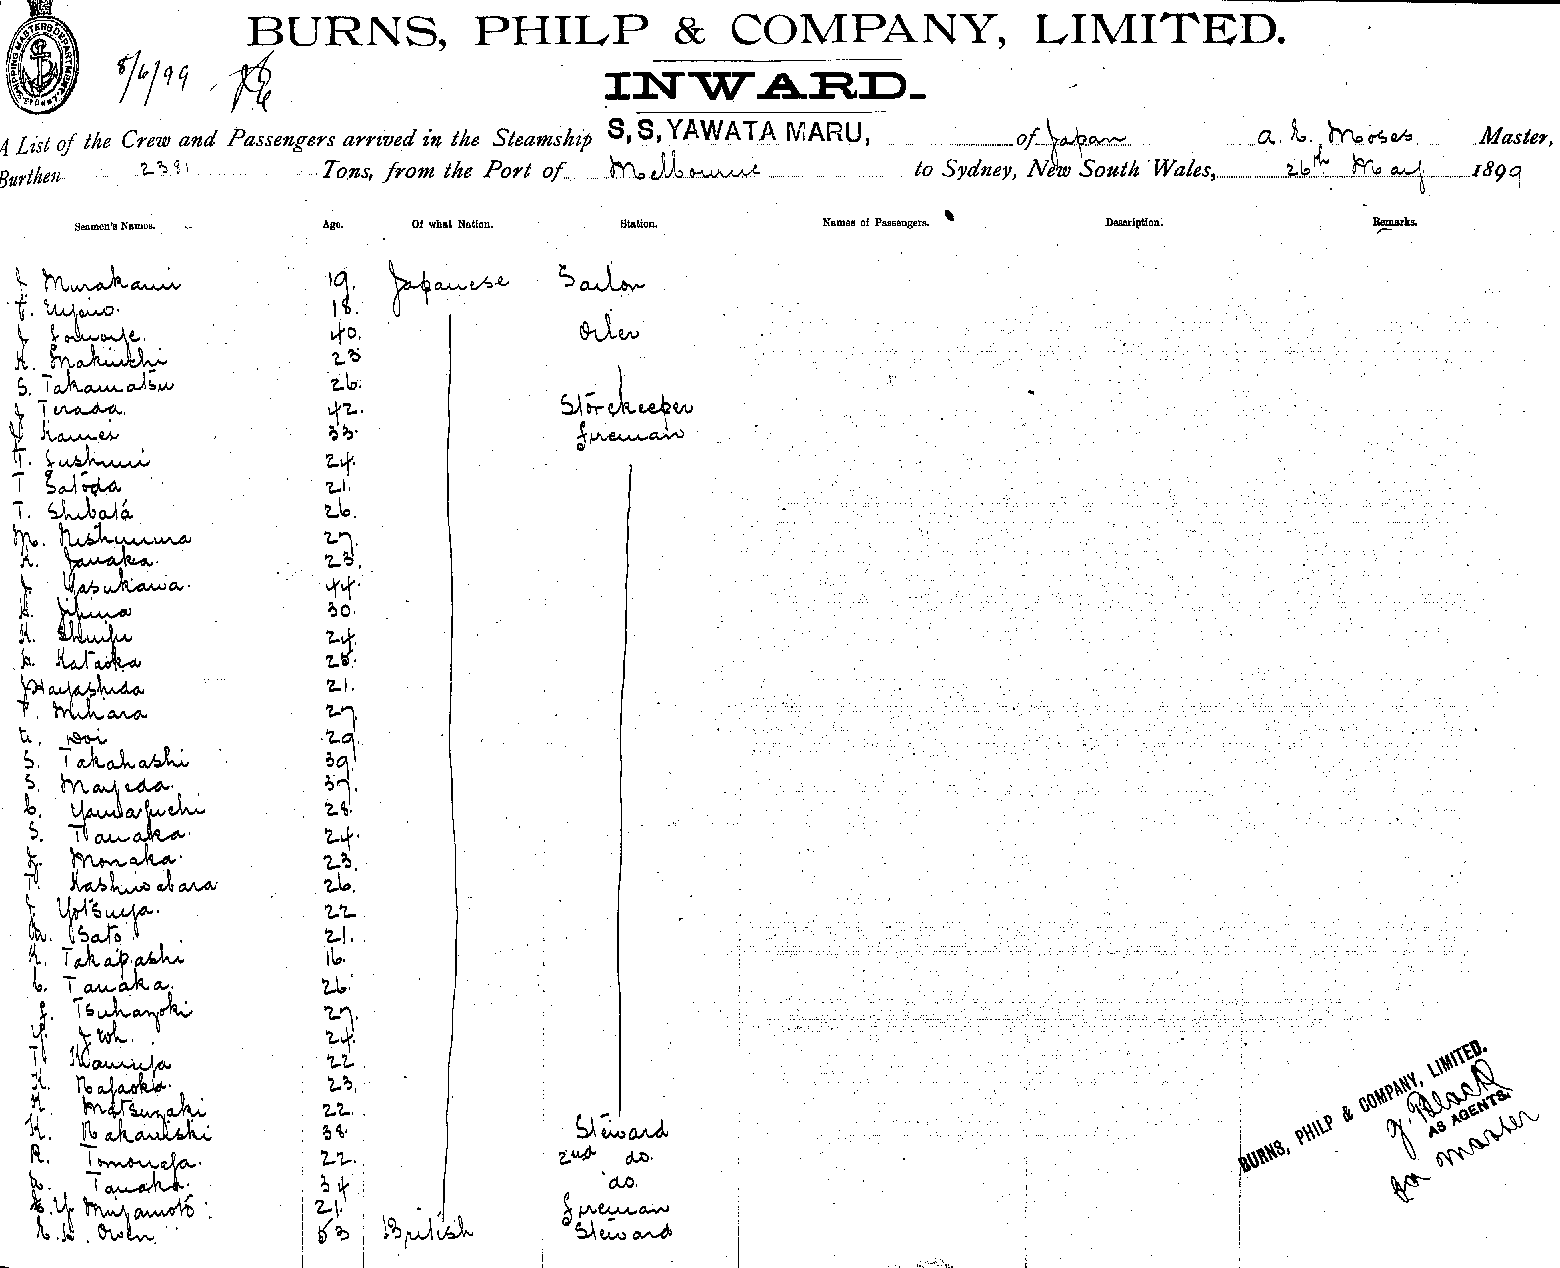 BURNS, PHILP & COMPANY, LIMITED.
8/6/99
INWARD.
A List of the Crew and Passengers arrived in the Steamship S,S, YAWATA MARU, of Japan A. E. Moses Master,
Burthen 2381 Tons, from the Port of Melbourne to Sydney, New South Wales, 26th May 1899
Seamen's Names. Age. Of what Nation. Station. Names of Passengers. Description. Remarks.
J Murakami 19. Japanese Sailor
18.
40. Oiler
K. Makiuchi 23
S. Takamatsu 26.
J Terada. 42. Storekeeper
Kamei 33. fireman
T. Fushimi 24.
T Satoda 21.
T. Shibata 26.
M. Nishimura 27
K. Tanaka. 23.
J Yasukawa. 44.
Jijima 30.
K. 24.
Kataoka 28.
J Hayashida 21.
T. Mihara 27
Doi 29.
S. Takahashi 39
S. Mayeda. 37.
Yamaguchi 28.
S. Tanaka. 24.
Monaka. 23.
T. Kashiwabara 26.
J. Yotsuya. 22
Sato 21.
K. Takahashi 16.
Tanaka. 26
27.
24.
T. 22
K. Nagaoka. 23.
K. Matsuzaki 22.
K. Nakanishi 38. Steward
R. Tomonaga. 22. 2nd do.
Tanaka. 34 do.
Y Miyamoto 21. fireman
Owen 53 British Steward
BURNS, PHILP & COMPANY, LIMITED.
J. Black
AS AGENTS.
for Master